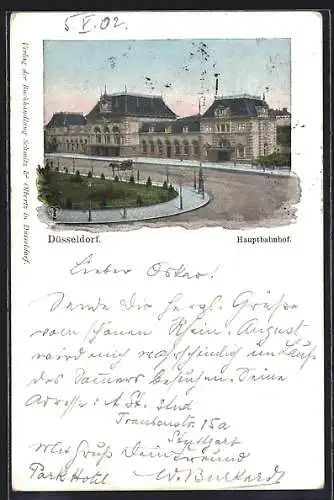 5 V. 02.
Verlag der Buchhandlung Schmitz & Olbertz in Düsseldorf.
Düsseldorf. Hauptbahnhof.
Lieber Oskar!
Sende Dir herzl. Grüße
vom schönen Rhein. August
wird mich wahrscheinlich im Laufe
des Sommers besuchen. Seine
Adresse: A. St. stud
15a
Stuttgart
Mit Gruß Dein Freund
Park Hotel W. Burkardt